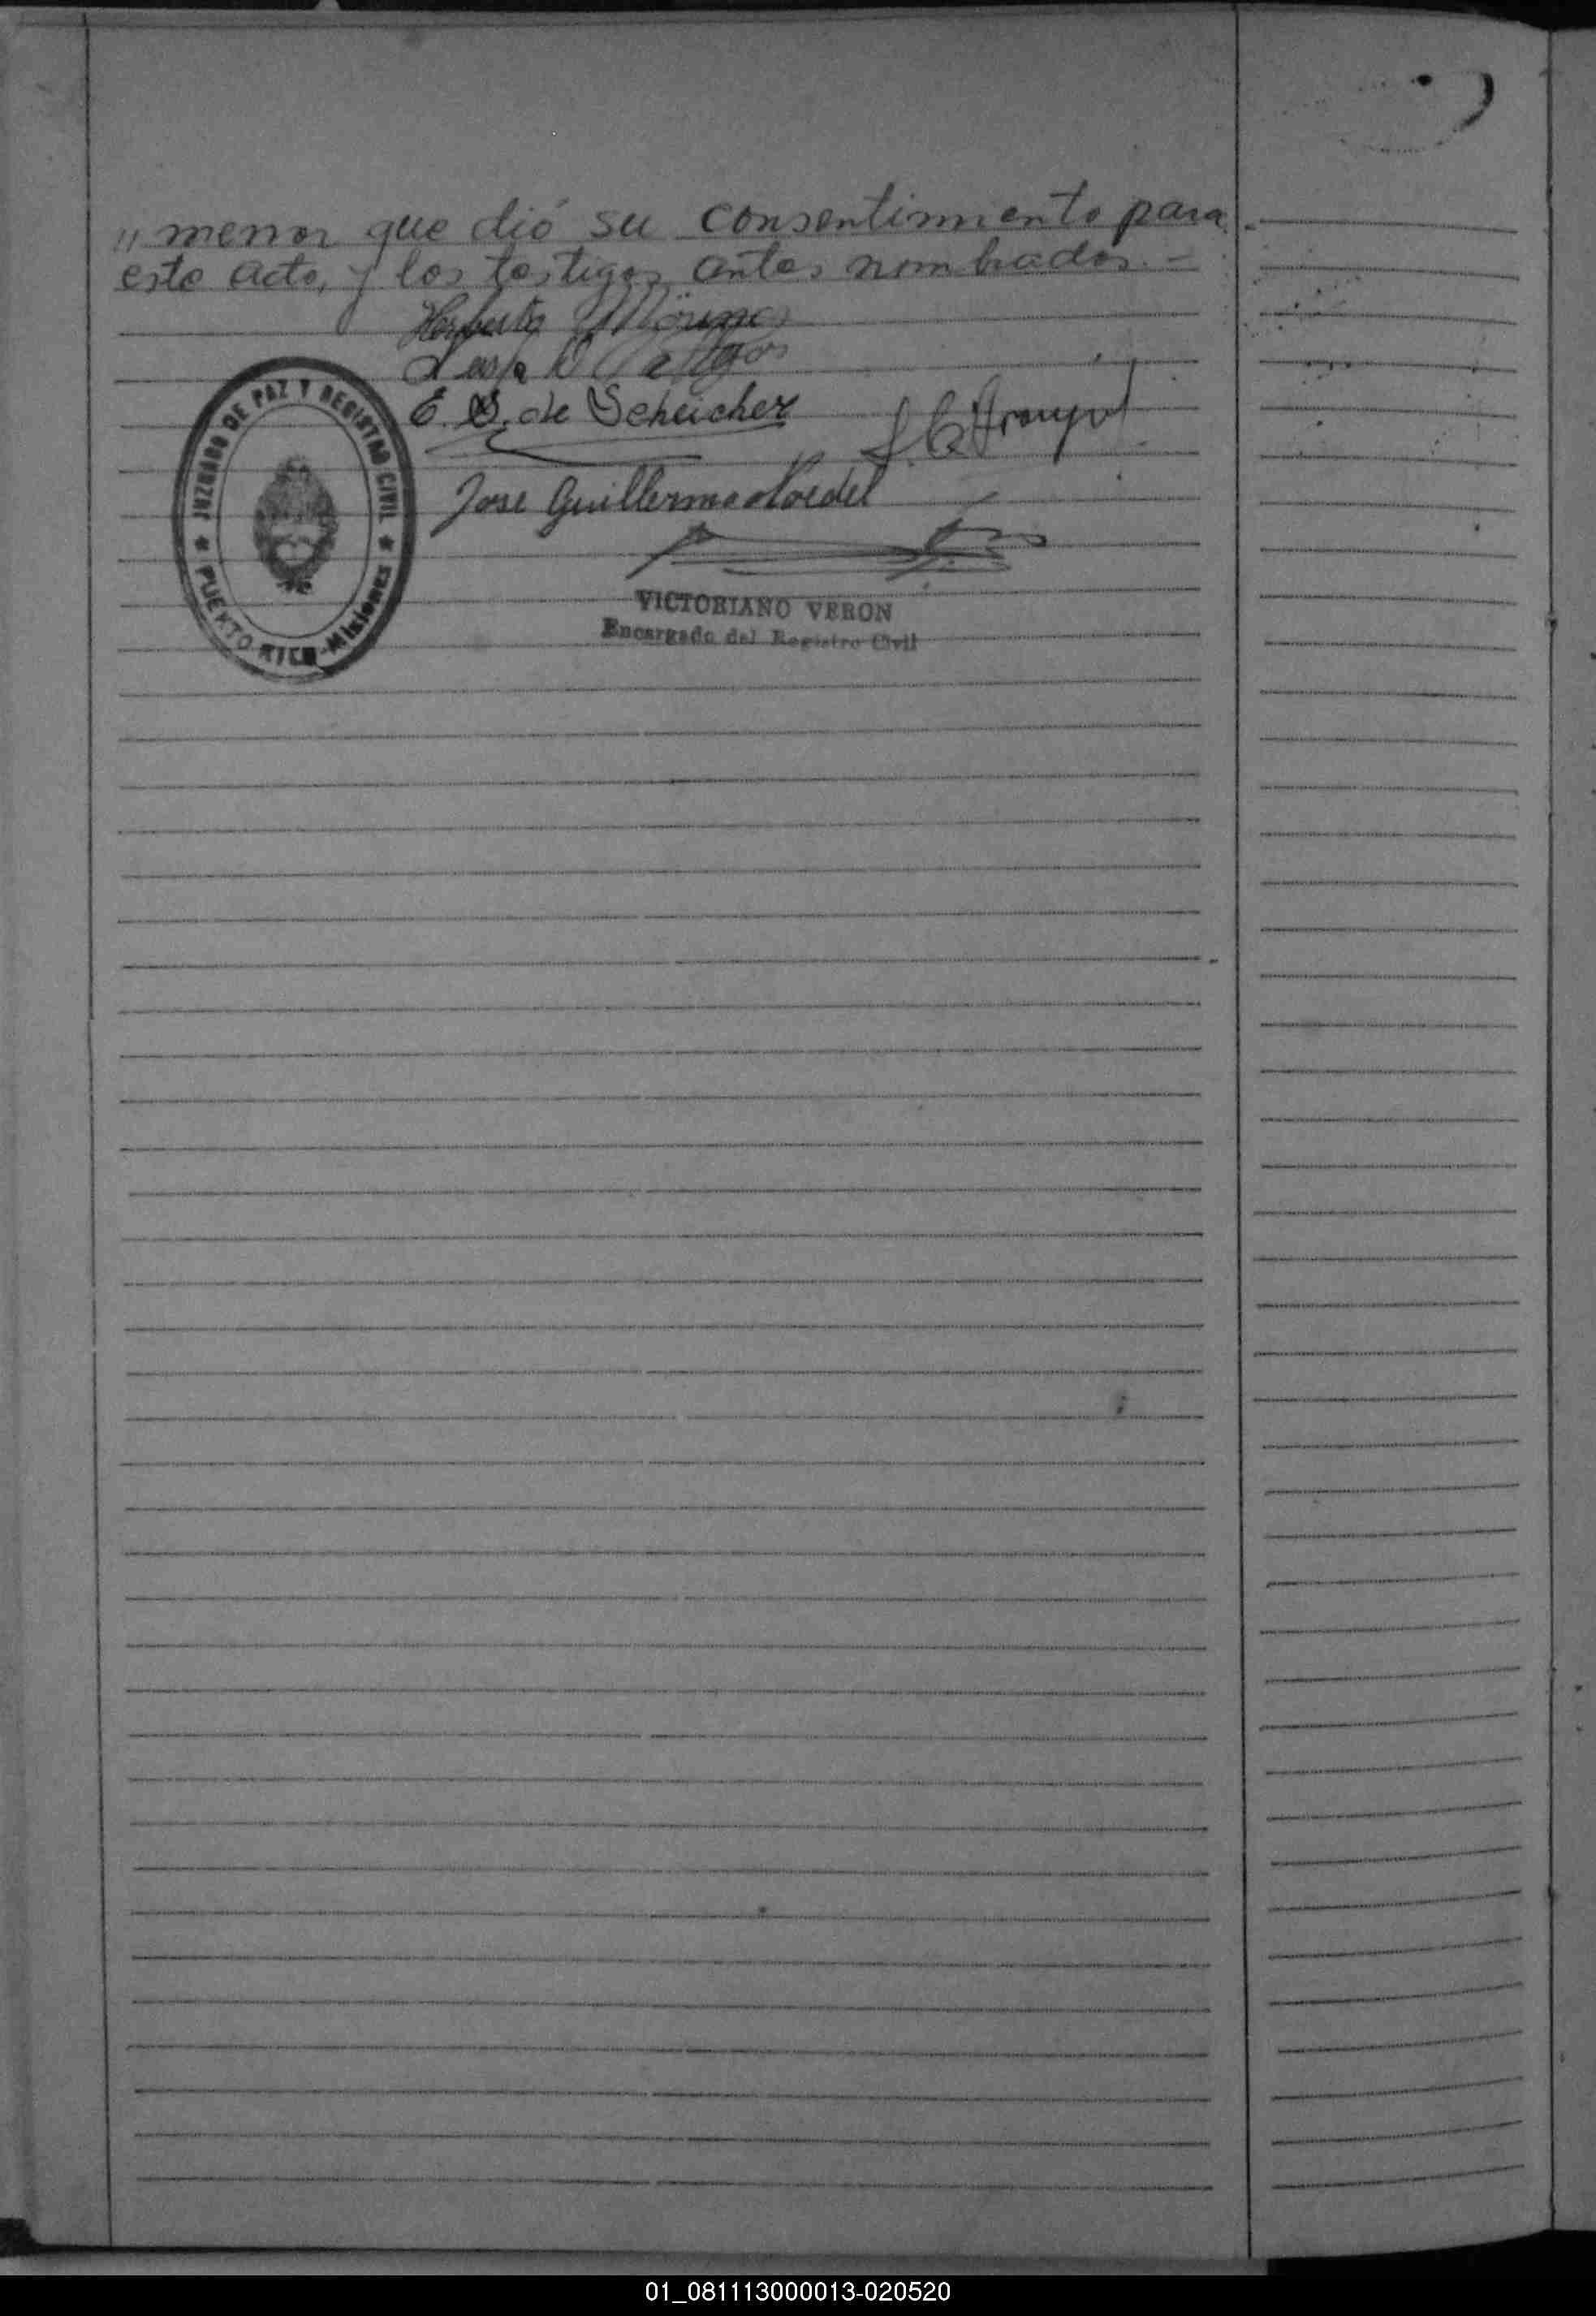 „ menor que dió su consentimiento para
este acto, y los testigos antes nombrados.-
E. S. de Scheicher
Jose Guillermo
JUZGADO DE PAZ Y REGISTRO CIVIL
PUERTO RICO - Misiones
VICTORIANO VERON
Encargado del Registro Civil
01_081113000013-020520